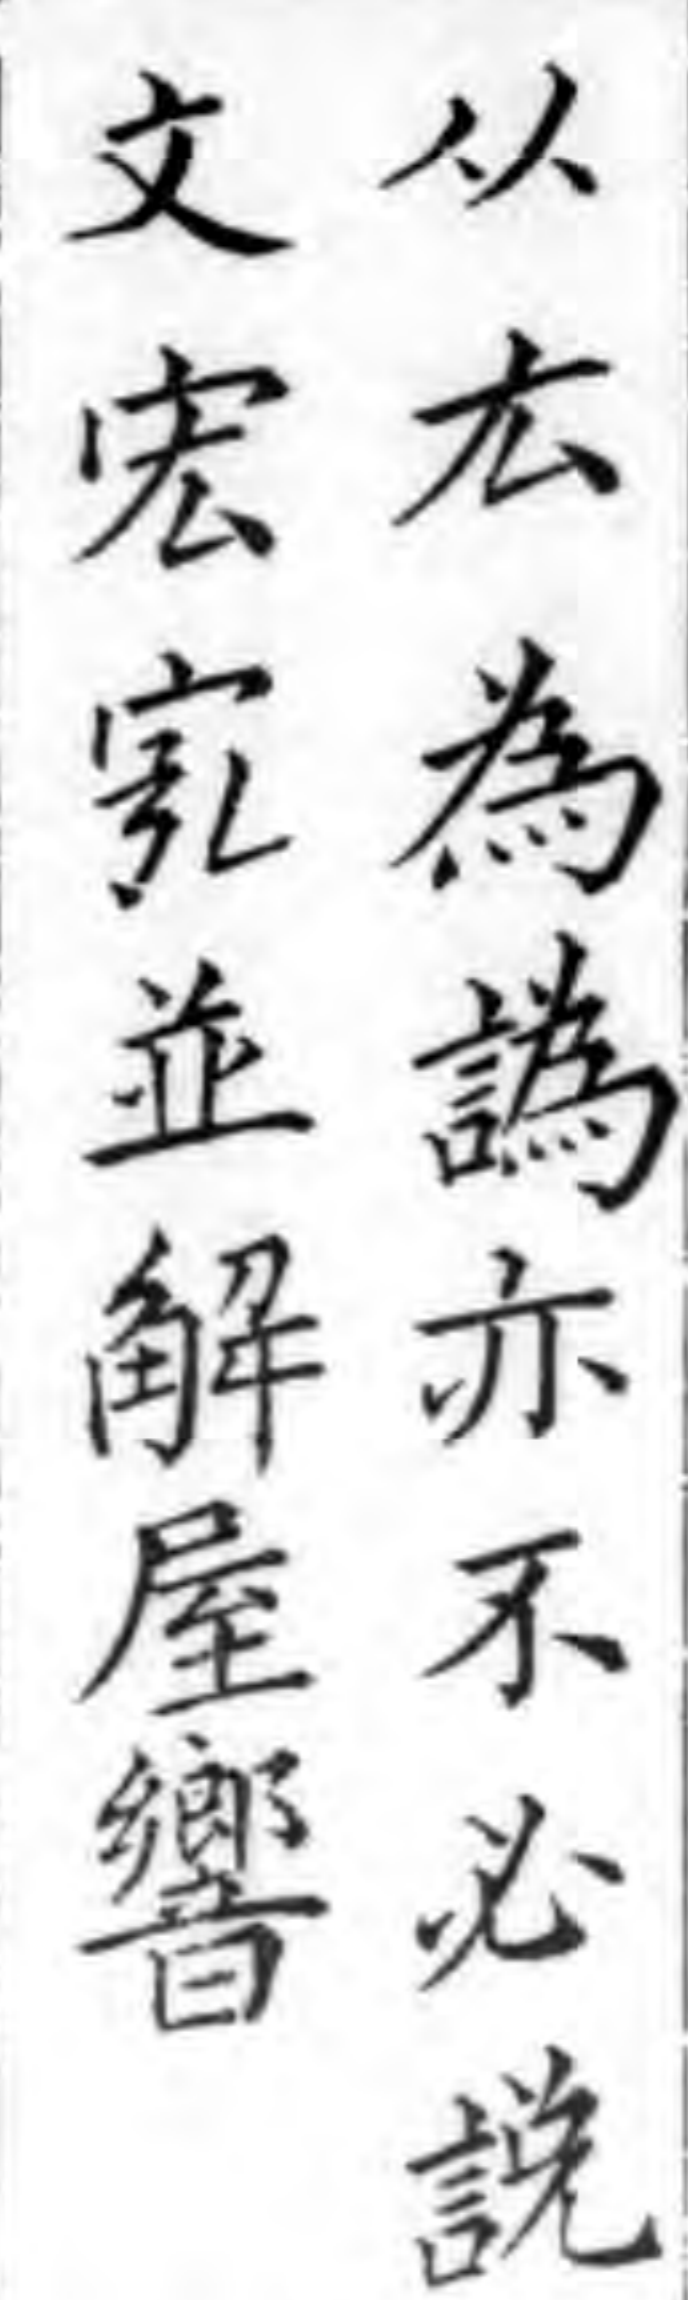 从厷為譌亦不必説
文宏宖並解屋響